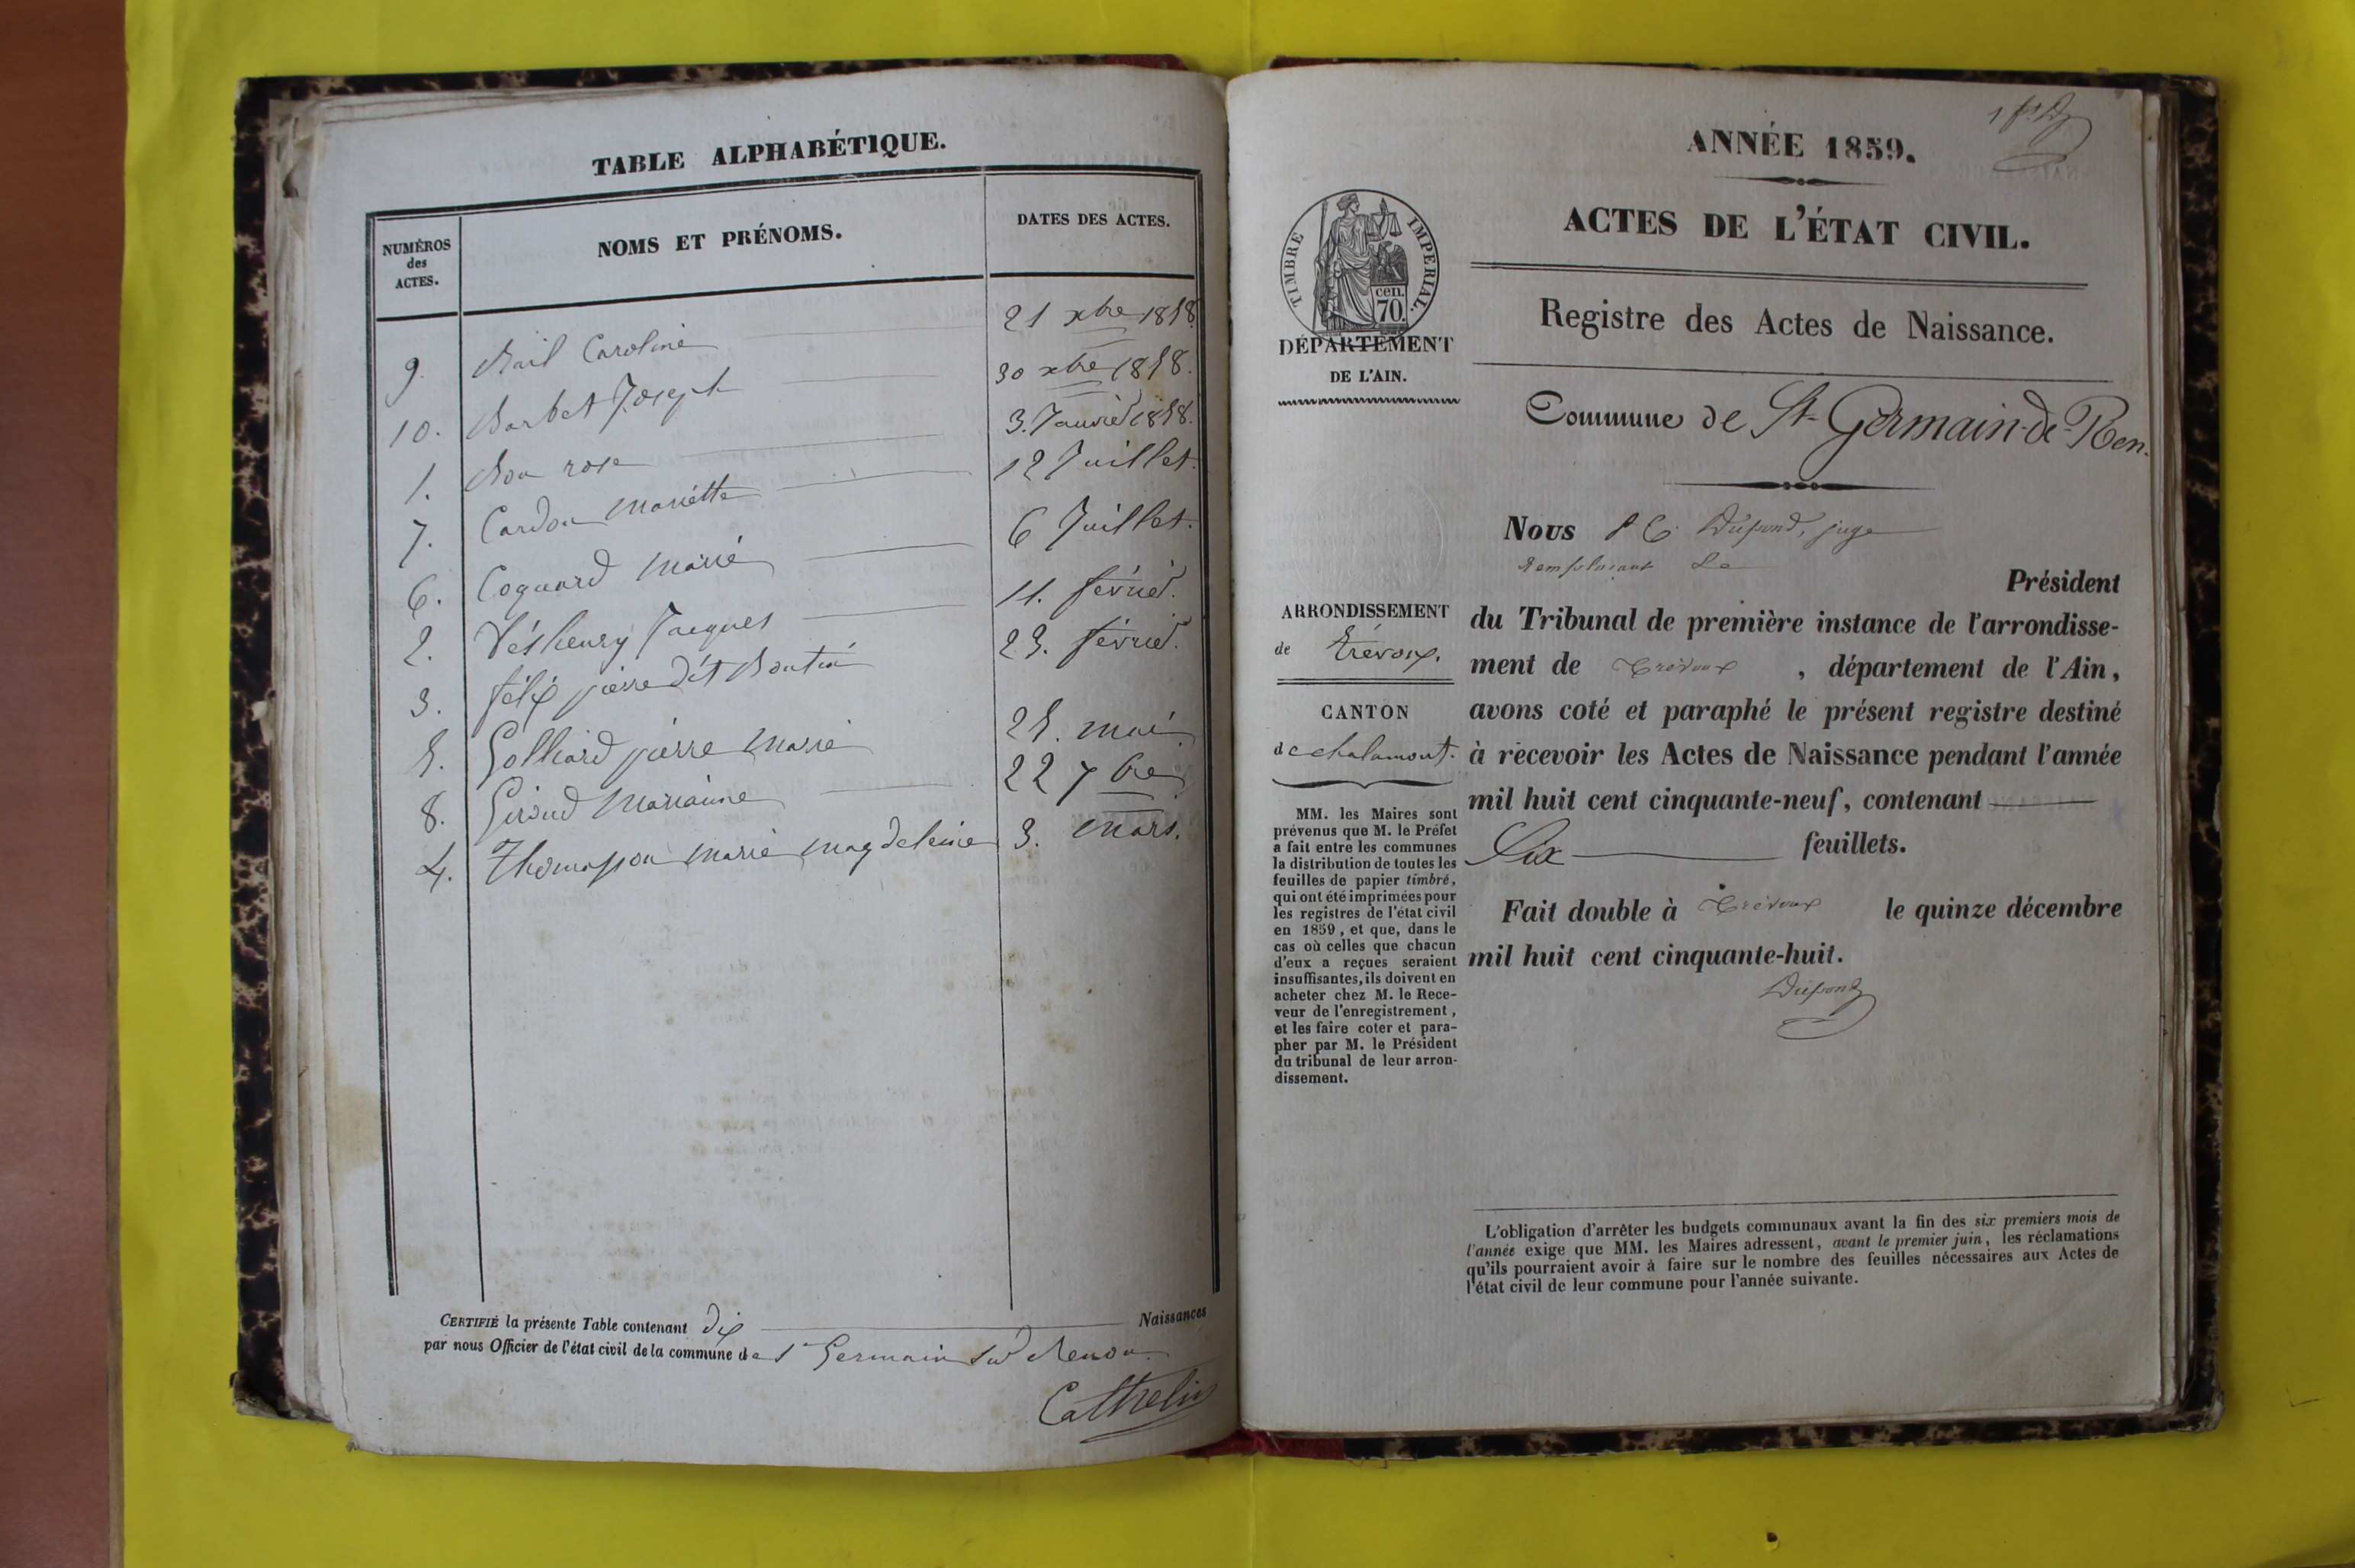 TABLE ALPHABÉTIQUE.
NUMÉROS des ACTES.
NOMS ET PRÉNOMS.
DATES DES ACTES.
9. Bail Caroline 21 xbre 1858.
10. Barbet Joseph 30 xbre 1858.
1. Bon rose 3. Janvier 1858.
7. Cardon Mariette 12 Juillet.
6. Coquard Marie 6 Juillet.
2. Jacques 11. février.
3. félix pierre dit 23. février.
5. Golliard pierre Marie 25. mai.
8. Giroud Marianne 22 7bre
4. Thomasson Marie Magdeleine 3. Mars.
CERTIFIÉ la présente Table contenant dix Naissances
par nous Officier de l'état civil de la commune de St Germain sur Renon.
Cathelin
ANNÉE 1859.
ACTES DE L'ÉTAT CIVIL.
Registre des Actes de Naissance.
TIMBRE IMPERIAL.
cen. 70.
DÉPARTEMENT
DE L'AIN.
Commune de St-Germain-de-Ren.
Nous Dupond, juge
Remplaçant Le
Président
du Tribunal de première instance de l'arrondisse-
ment de Trévoux, département de l'Ain,
avons coté et paraphé le présent registre destiné
à recevoir les Actes de Naissance pendant l'année
mil huit cent cinquante-neuf, contenant
Six feuillets.
Fait double à Trévoux le quinze décembre
mil huit cent cinquante-huit.
Dupond
ARRONDISSEMENT
de Trévoux.
CANTON
de chalamont.
MM. les Maires sont
prévenus que M. le Préfet
a fait entre les communes
la distribution de toutes les
feuilles de papier timbré,
qui ont été imprimées pour
les registres de l'état civil
en 1859, et que, dans le
cas où celles que chacun
d'eux a reçues seraient
insuffisantes, ils doivent en
acheter chez M. le Rece-
veur de l'enregistrement,
et les faire coter et para-
pher par M. le Président
du tribunal de leur arron-
dissement.
L'obligation d'arrêter les budgets communaux avant la fin des six premiers mois de
l'année exige que MM. les Maires adressent, avant le premier juin, les réclamations
qu'ils pourraient avoir à faire sur le nombre des feuilles nécessaires aux Actes de
l'état civil de leur commune pour l'année suivante.